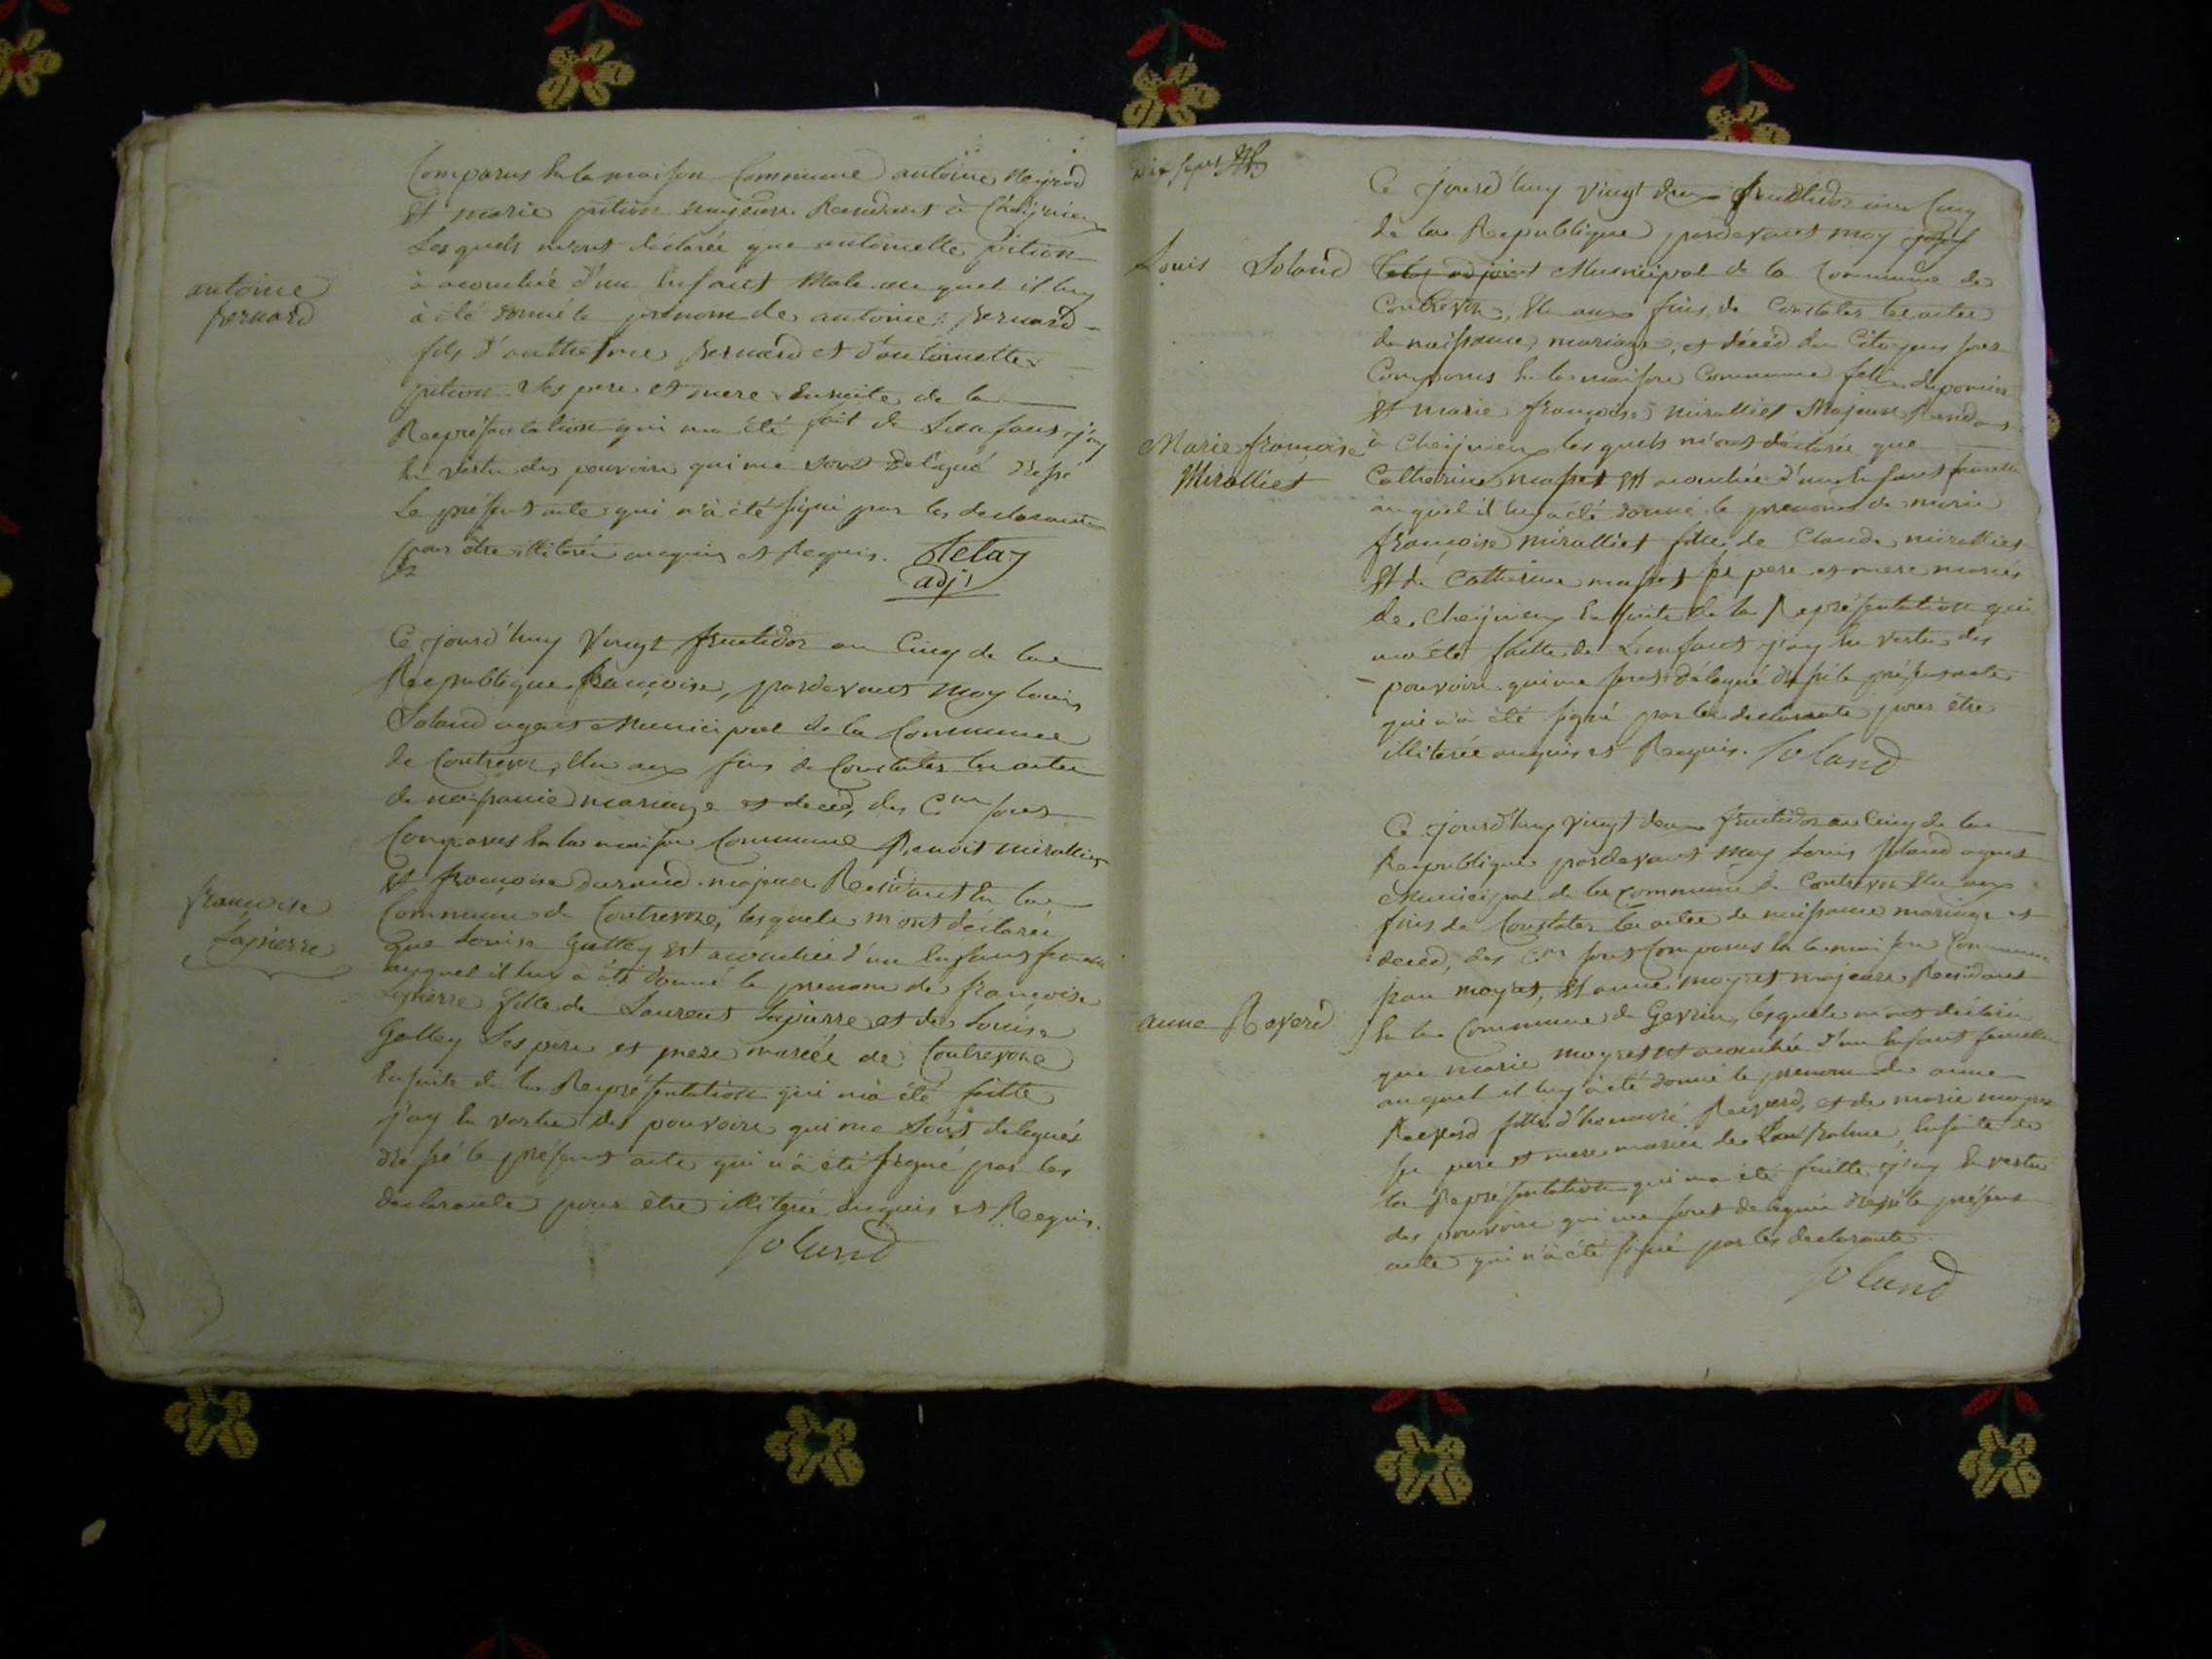 Comparus en la maison Commune antoine Neyrod
et marie pition majeurs Residents à Cheignieu
Lesquels m'ont déclarée que antoinette pition
à acouchée d'un Enfant Male auquel il luy
à été donné le prénom de antoine Bernard
fils d'anthelme Bernard et d'antoinette
pition Ses pere et mere Ensuite de la
Representation qui ma été fait de Lenfant, j'ay
En vertu des pouvoirs qui me sont delegué dressé
Le présent acte qui n'à été signé par les declarants
pour être illiterée enquis et Requis.
adj.
antoine
Bernard
Ce jourd'huy Vingt fructidor an Cinq de la
Republique francoise, pardevant Moy louis
Soland agent Municipal de la Commune
de Contrevoz, Elu aux fins de Constater les actes
de naissance mariage et deces, des Cens sont
Comparus En la maison Commune Benoit mirallier
et françoise durand majeurs Residants En la
Commune de Contrevoz, lesquels m'ont déclarée
que Louise Gattey est acouchée d'un Enfant femelle
auquel il luy à été donné le prenom de françoise
Lapierre fille de Laurent Lapierre et de Louise
Gattey Ses pere et mere mariée de Contrevoz
Ensuite de la Représentation qui m'à été faitte
j'ay En vertu des pouvoirs qui me Sont delegués
dressé le présent acte qui n'à été signé par les
declarants pour être illiterée enquis et Requis.
Soland
françoise
Lapierre
Dix sept
Ce jourd'huy vingt deux fructidor an Cinq
de la Republique pardevant moy
Louis Soland
adjoint Municipal de la Commune de
Contrevoz, Elu aux fins de Constater les actes
de naissance, mariage, et décéd des Citoyens sont
Comparus En la maison Commune
et marie françoise miralliet Majeurs Residants
à Cheignieu, les quels m'ont déclarée que
Catherine masset est acouchée d'un Enfant femelle
auquel il luy à été donné le prenom de marie
françoise miralliet fille de Claude miralliet
et de Catherine masset ses pere et mere mariés
de Cheignieu Ensuite de la Représentation qui
m'a été faitte de Lenfant j'ay En vertu des
pouvoirs qui me sont délegué dressé le présent acte
qui n'à été signé par les declarants pour être
illiterée enquis et Requis. Soland
Marie françoise
Miralliet
Ce jourd'huy vingt deux fructidor an Cinq de la
Republique pardevant moy Louis Soland agent
Municipal de la Commune de Contrevoz Elu aux
fins de Constater les actes de naissance mariage et
deced, des Cens sont Comparus En la maison Commune
moyret, et anne moyret majeurs Residants
En la Commune de Gevrin, lesquels m'ont déclarée
que marie moyret est acouchée d'un Enfant femelle
auquel il luy à été donné le prenom de anne
Reverd fille d'honnoré Reverd, et de marie moyret
ses pere et mere mariée de Ensuite de
la Représentation qui ma été faitte j'ay En vertu
des pouvoirs qui me sont delegués dressé le présent
acte qui n'à été signé par les declarants.
Soland
anne Reverd